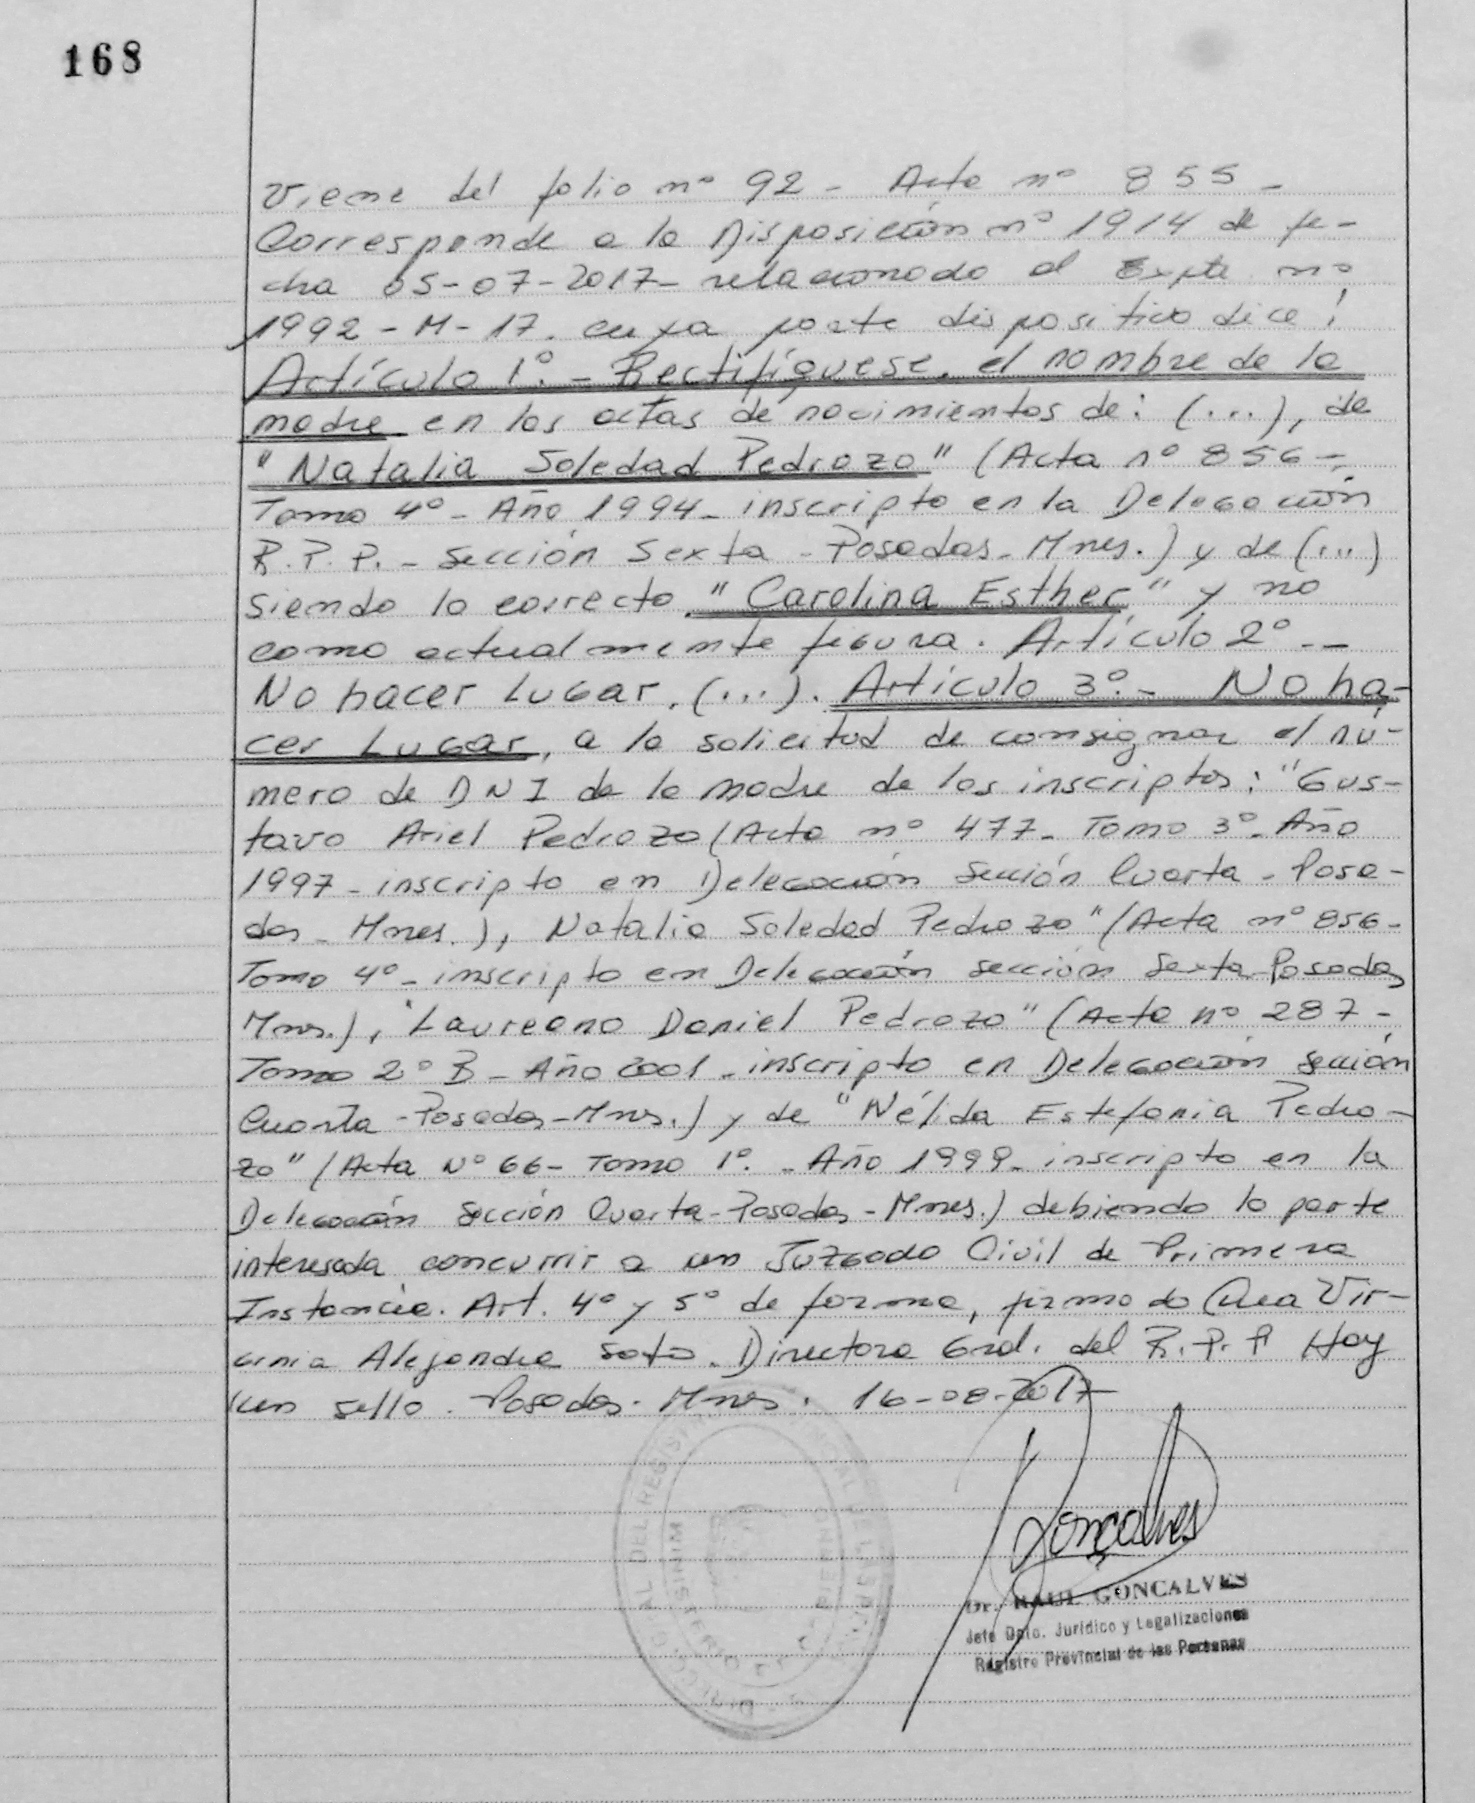 168
Viene del folio nº 92 - Acta nº 855 -
Corresponde a la Disposición nº 1914 de fe-
cha 05-07-2017- relacionado al Expte nº
1992 - M - 17. cuya parte dispositiva dice:
Artículo 1º. - Rectifíquese, el nombre de la
madre en las actas de nacimientos de: (...), de
"Natalia Soledad Pedrozo" (Acta nº 856 -
Tomo 4º - Año 1994 - inscripto en la Delegación
R.P.P. - Sección Sexta - Posadas - Mnes.) y de (...)
siendo lo correcto "Carolina Esther" y no
como actualmente figura. Artículo 2º. -
No hacer Lugar, (...). Artículo 3º. - No ha-
cer Lugar, a la solicitud de consignar el nú-
mero de DNI de la madre de los inscriptos: "Gus-
tavo Ariel Pedrozo (Acta nº 477 - Tomo 3º - Año
1997 - inscripto en Delegación Sección Cuarta - Posa-
das - Mnes.), Natalia Soledad Pedrozo" (Acta nº 856 -
Tomo 4º - inscripto en Delegación sección Sexta Posadas
Mnes.), "Laureano Daniel Pedrozo" (Acta nº 287 -
Tomo 2º B - Año 2001 - inscripto en Delegación Sección
Cuarta - Posadas - Mnes.) y de "Nélida Estefania Pedro-
zo" (Acta Nº 66 - Tomo 1º. - Año 1999 - inscripto en la
Delegación Sección Cuarta - Posadas - Mnes.) debiendo la parte
interesada concurrir a un Juzgado Civil de Primera
Instancia. Art. 4º y 5º de forma, firmado Vir-
ginia Alejandra Soto. Directora Gral. del R.P.P Hay
un sello. Posadas - Mnes. 16-08-2017
Goncalves
Dr. RAUL GONCALVES
Jefe Dpto. Jurídico y Legalizaciones
Registro Provincial de las Personas